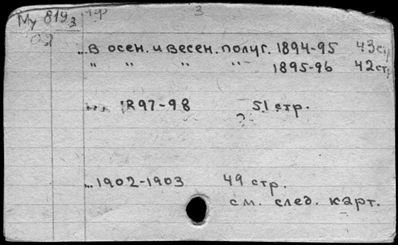 Му 819/3 3
...в осен. и весен. полуг. 1894-95 43 ст
" " " " 1895-96 42 стр
... 1897-98 51 стр.
?
...1902-1903 49 стр.
см. след. карт.